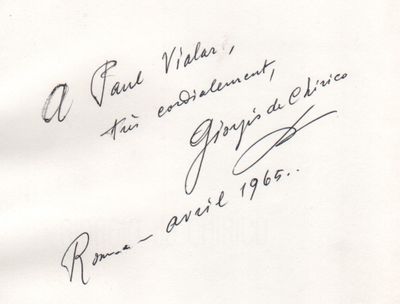 A Paul Vialar,
très cordialement,
Giorgio de Chirico
Roma - avril 1965..